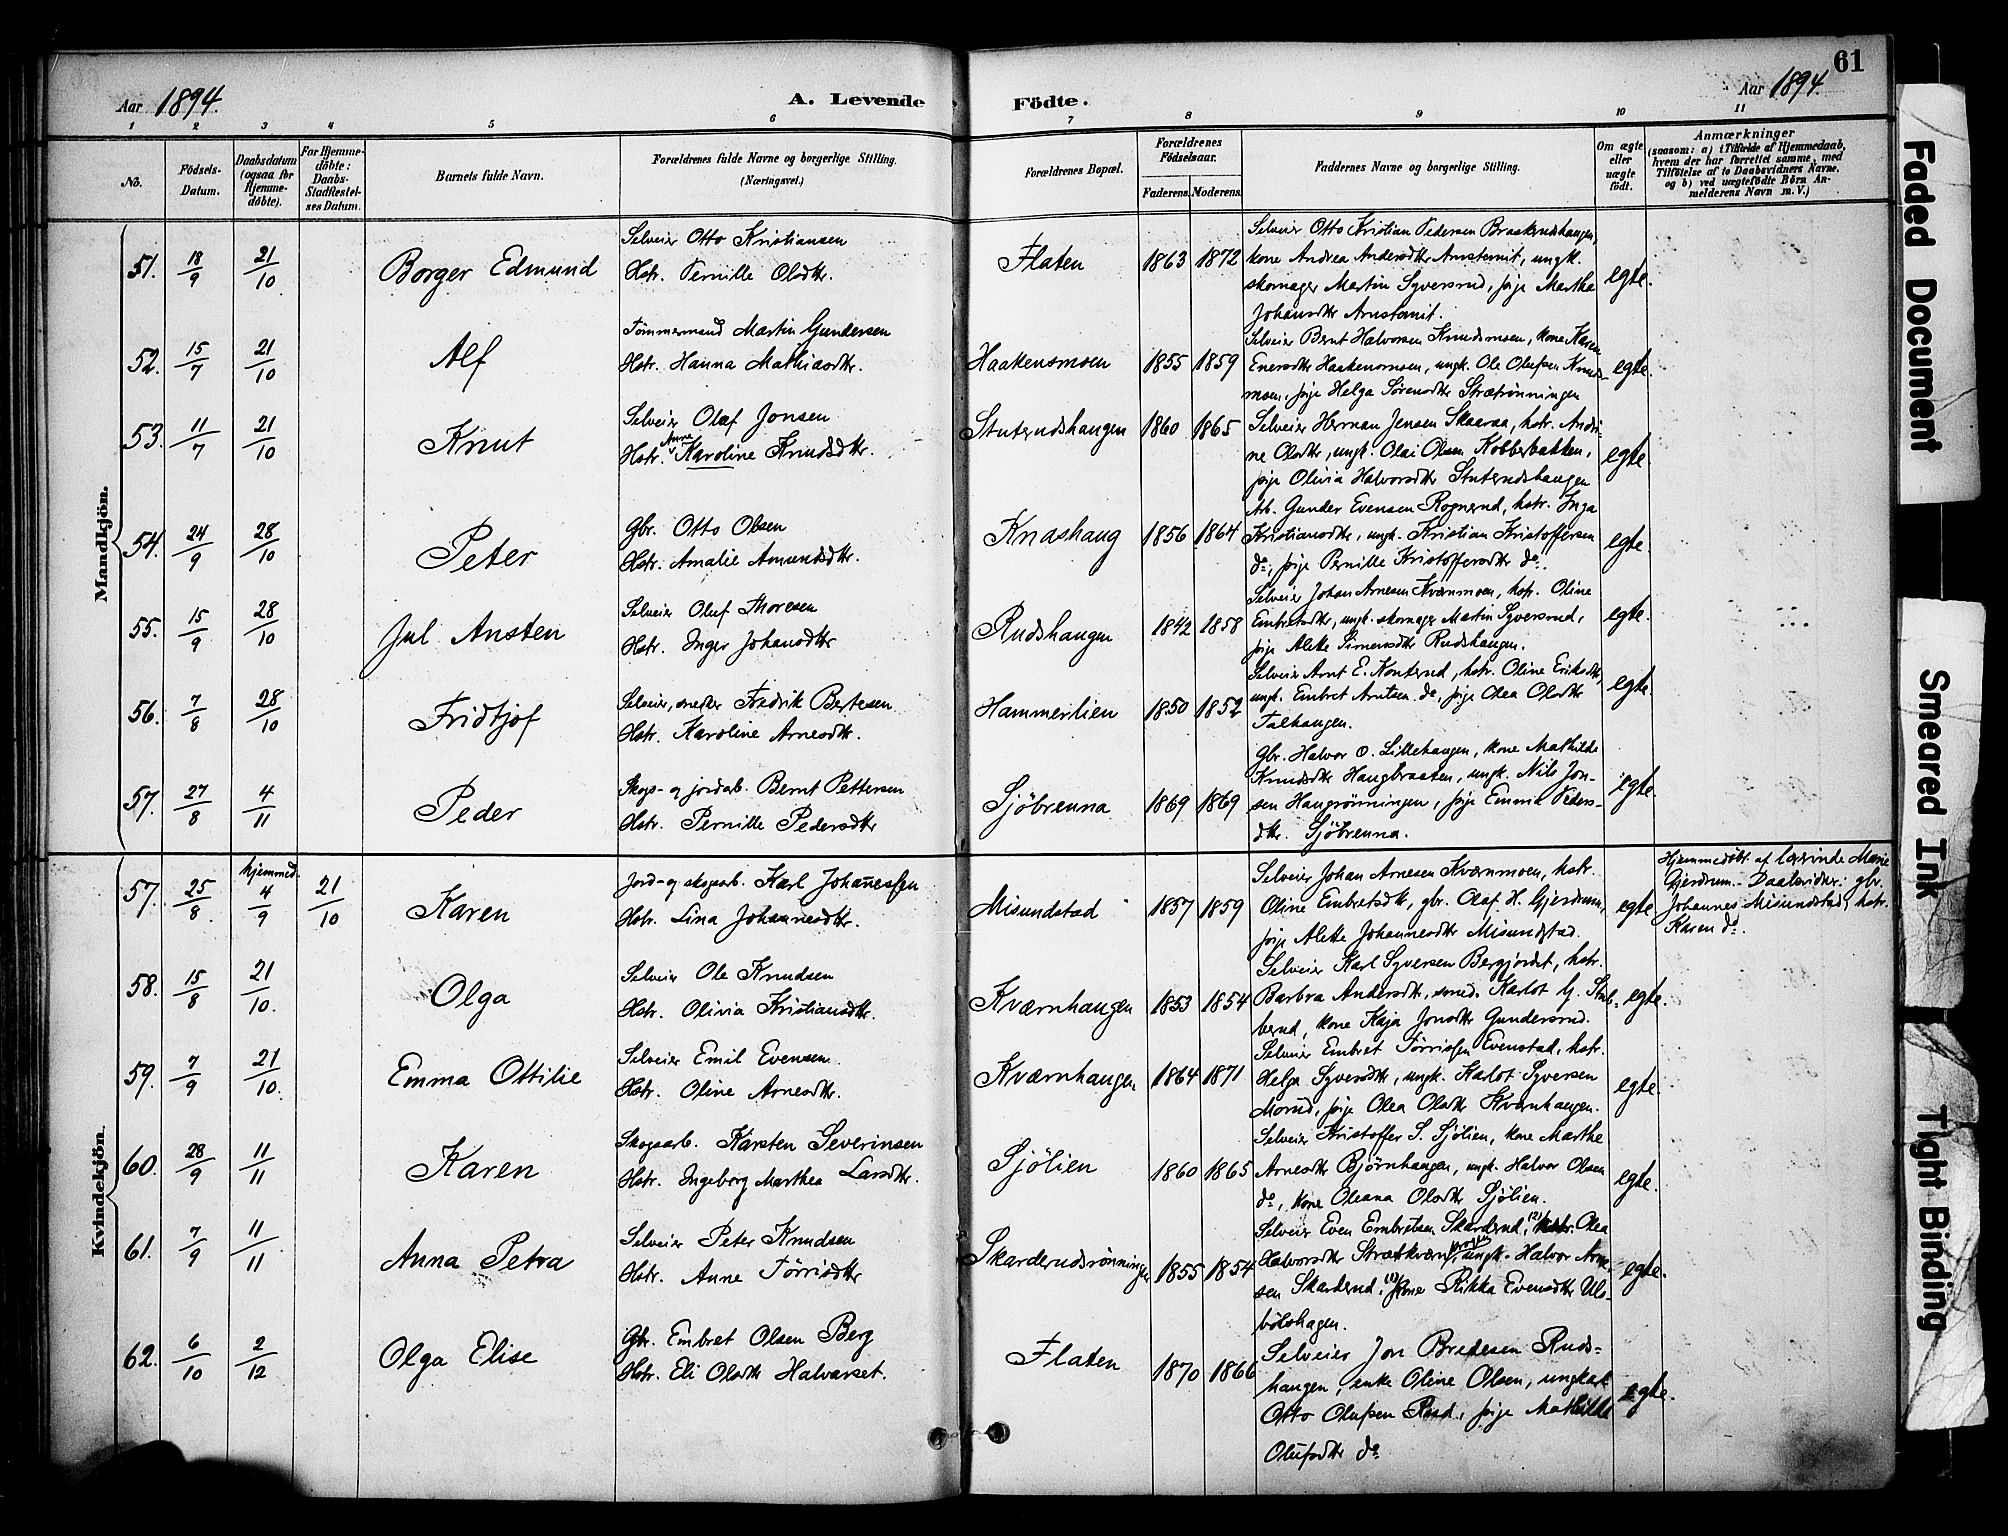 61
Aar 1894.
A. Levende Födte.
Aar 1894.
1 2 3 4 5 6 7 8 9 10 11
No.
Födsels-Datum.
Daabsdatum (ogsaa for Hjemme-döbte).
For Hjemme-döbte: Daabs-Stadfæstel-ses Datum.
Barnets fulde Navn.
Forældrenes fulde Navne og borgerlige Stilling. (Næringsvei.)
Forældrenes Bopæl.
Forældrenes Födselsaar.
Faderens. Moderens.
Faddernes Navne og borgerlige Stilling.
Om ægte eller uægte födt.
Anmærkninger
(saasom: a) i Tilfælde af Hjemmedaab, hvem der har forrettet samme, med Tilföielse af to Daabsvidners Navne, og b) ved uægtefödte Börn An-melderens Navn m. V.)
Mandkjön.
51. 18/9 21/10 Borger Edmund
Selveier Otto Kristiansen
Hstr. Pernille Olsdtr.
Flaten 1863 1872
Selveier Otto Kristian Pedersen Braskerudhaugen,
kone Andrea Andersdtr Arnstomt, ungk.
skomager Martin Syversrud, pige Martha
Johansdtr Arnstomt.
egte.
52. 15/7 21/10 Alf
Tömmermand Martin Gundersen
Hstr. Hanna Mathiasdtr.
Haakensmoen 1855 1859
Selveier Bernt Halvorsen Knudsmoen, kone Karen
Enersdtr Haakensmoen, ungk. Ole Olufsen Knuds-
moen, pige Helga Sörensdtr Strætrönningen
egte.
53. 11/7 21/10 Knut
Selveier Olaf Jonsen
Hstr. Anne Karoline Knudsdtr.
Stuterudshaugen 1860 1865
Selveier Herman Jensen Skaaraa, hstr. Andri-
ne Olsdtr, ungk. Olai Olsen Kobberbakken,
pige Olivia Halvorsdtr Stuterudshaugen
egte.
54. 24/9 28/10 Peter
Gbr. Otto Olsen
Hstr. Amalie Amundsdtr.
Knashaug 1856 1864
Arb. Gunder Evensen Rognerud, hstr. Inga
Kristiansdtr, ungk. Kristian Kristoffersen
do, pige Pernille Kristoffersdtr do.
egte.
55. 15/9 28/10 Jul Ansten
Selveier Oluf Thoresen
Hstr. Inger Johansdtr
Rudshaugen 1842 1858
Selveier Johan Arnesen Kværnmoen, hstr. Oline
Embretsdtr, ungk. skomager Martin Syversrud,
pige Alette Simensdtr Rudshaugen.
egte.
56. 7/8 28/10 Fridtjof
Selveier, snedker Fredrik Bertesen
Hstr. Karoline Arnesdtr.
Hammerlien 1850 1852
Selveier Arnt E. Konterud, hstr. Oline Eriksdtr,
ungk. Embret Arntsen do, pige Olea Olsdtr
Falhaugen.
egte.
57. 27/8 4/11 Peder
Skogs- og jordarb. Bernt Pettersen
Hstr. Pernille Pedersdtr
Sjöbrenna 1869 1869
Gbr. Halvor O. Lillehaugen, kone Mathilde
Knudsdtr Haugbraaten, ungk. Nils Jon-
sen Haugrönningen, pige Emma Peders-
dtr. Sjöbrenna.
egte.
Kvindekjön.
57. 25/8 hjemmed. 4/9 21/10 Karen
Jord- og skogsarb. Karl Johannessen
Hstr. Lina Johannesdtr.
Misundstad 1857 1859
Selveier Johan Arnesen Kværnmoen, hstr.
Oline Embretsdtr, gbr. Olaf H. Gjerdrum,
pige Alette Johannesdtr Misundstad.
egte
Hjemmedöbt af lærerinde Marie
Gjerdrum. Daabsvidner: gbr.
Johannes Misundstad, hstr.
Karen do.
58. 15/8 21/10 Olga
Selveier Ole Knudsen
Hstr. Olivia Kristiansdtr.
Kværnhaugen 1853 1854
Selveier Karl Syversen Bergjordet, hstr.
Barbra Andersdtr, smed Karlot G. Stub-
berud, kone Kaja Jonsdtr Gundersrud.
egte.
59. 7/9 21/10 Emma Ottilie
Selveier Emil Evensen
Hstr. Oline Arnesdtr.
Kværnhaugen 1864 1871
Selveier Embret Törrissen Evenstad, hstr.
Helga Syversdtr, ungk. Karlot Syversen
Morud, pige Olea Olsdtr Kværnhaugen.
egte.
60. 28/9 11/11 Karen
Skogsarb. Karsten Severinsen
Hstr. Ingeborg Marthea Larsdtr.
Sjölien 1860 1865
Selveier Kristoffer S. Sjölien, kone Marthe
Arnesdtr Björnhaugen, ungk. Halvor Olsen
do, kone Oleana Olsdtr Sjölien.
egte.
61. 7/9 11/11 Anna Petra
Selveier Peter Knudsen
Hstr. Anne Törrisdtr
Skarderudsrönningen 1855 1854
Selveier Even Embretsen Skarderud, (2) Olea
Halvorsdtr Strætkværn, ungk. Halvor Arne-
sen Skarderud, (1) kone Rikka Evensdtr Uls-
bölshagen.
egte.
62. 6/10 2/12 Olga Elise
Gbr. Embret Olsen Berg
Hstr. Eli Olsdtr Halvorset.
Flaten 1870 1866
Selveier Jon Bredesen Ruds-
haugen, enke Oline Olsen, ungkarl
Otto Olufsen Rud, pige Mathilde
Olufsdtr do
egte.
Faded Document
Smeared Ink
Tight Binding